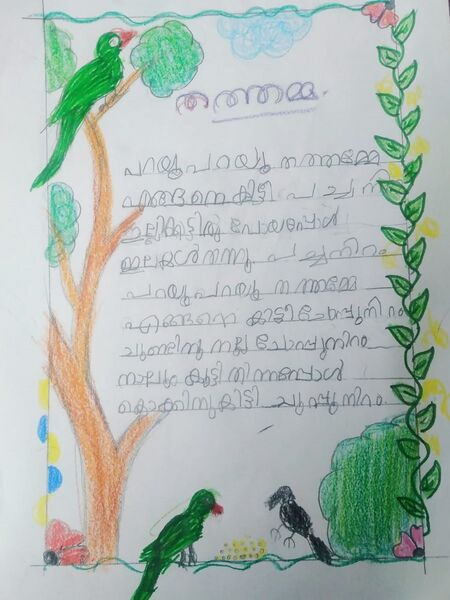 തത്തമ്മ.
പറയൂ പറയൂ തത്തമ്മേ
എങ്ങനെ കിട്ടി പച്ച നി
ഇല്ലിക്കാട്ടിൽ പോയപ്പോൾ
ഇലകൾ തന്നു പച്ചനിറം
പറയു പറയൂ തത്തമ്മേ
എങ്ങനെ കിട്ടി ചോപ്പുനിറം
ചുണ്ടിനു നല്ല ചോപ്പുനിറം
നാലും കൂട്ടി തിന്നപ്പോൾ
കൊക്കിനു കിട്ടി ചുവപ്പുനിറം